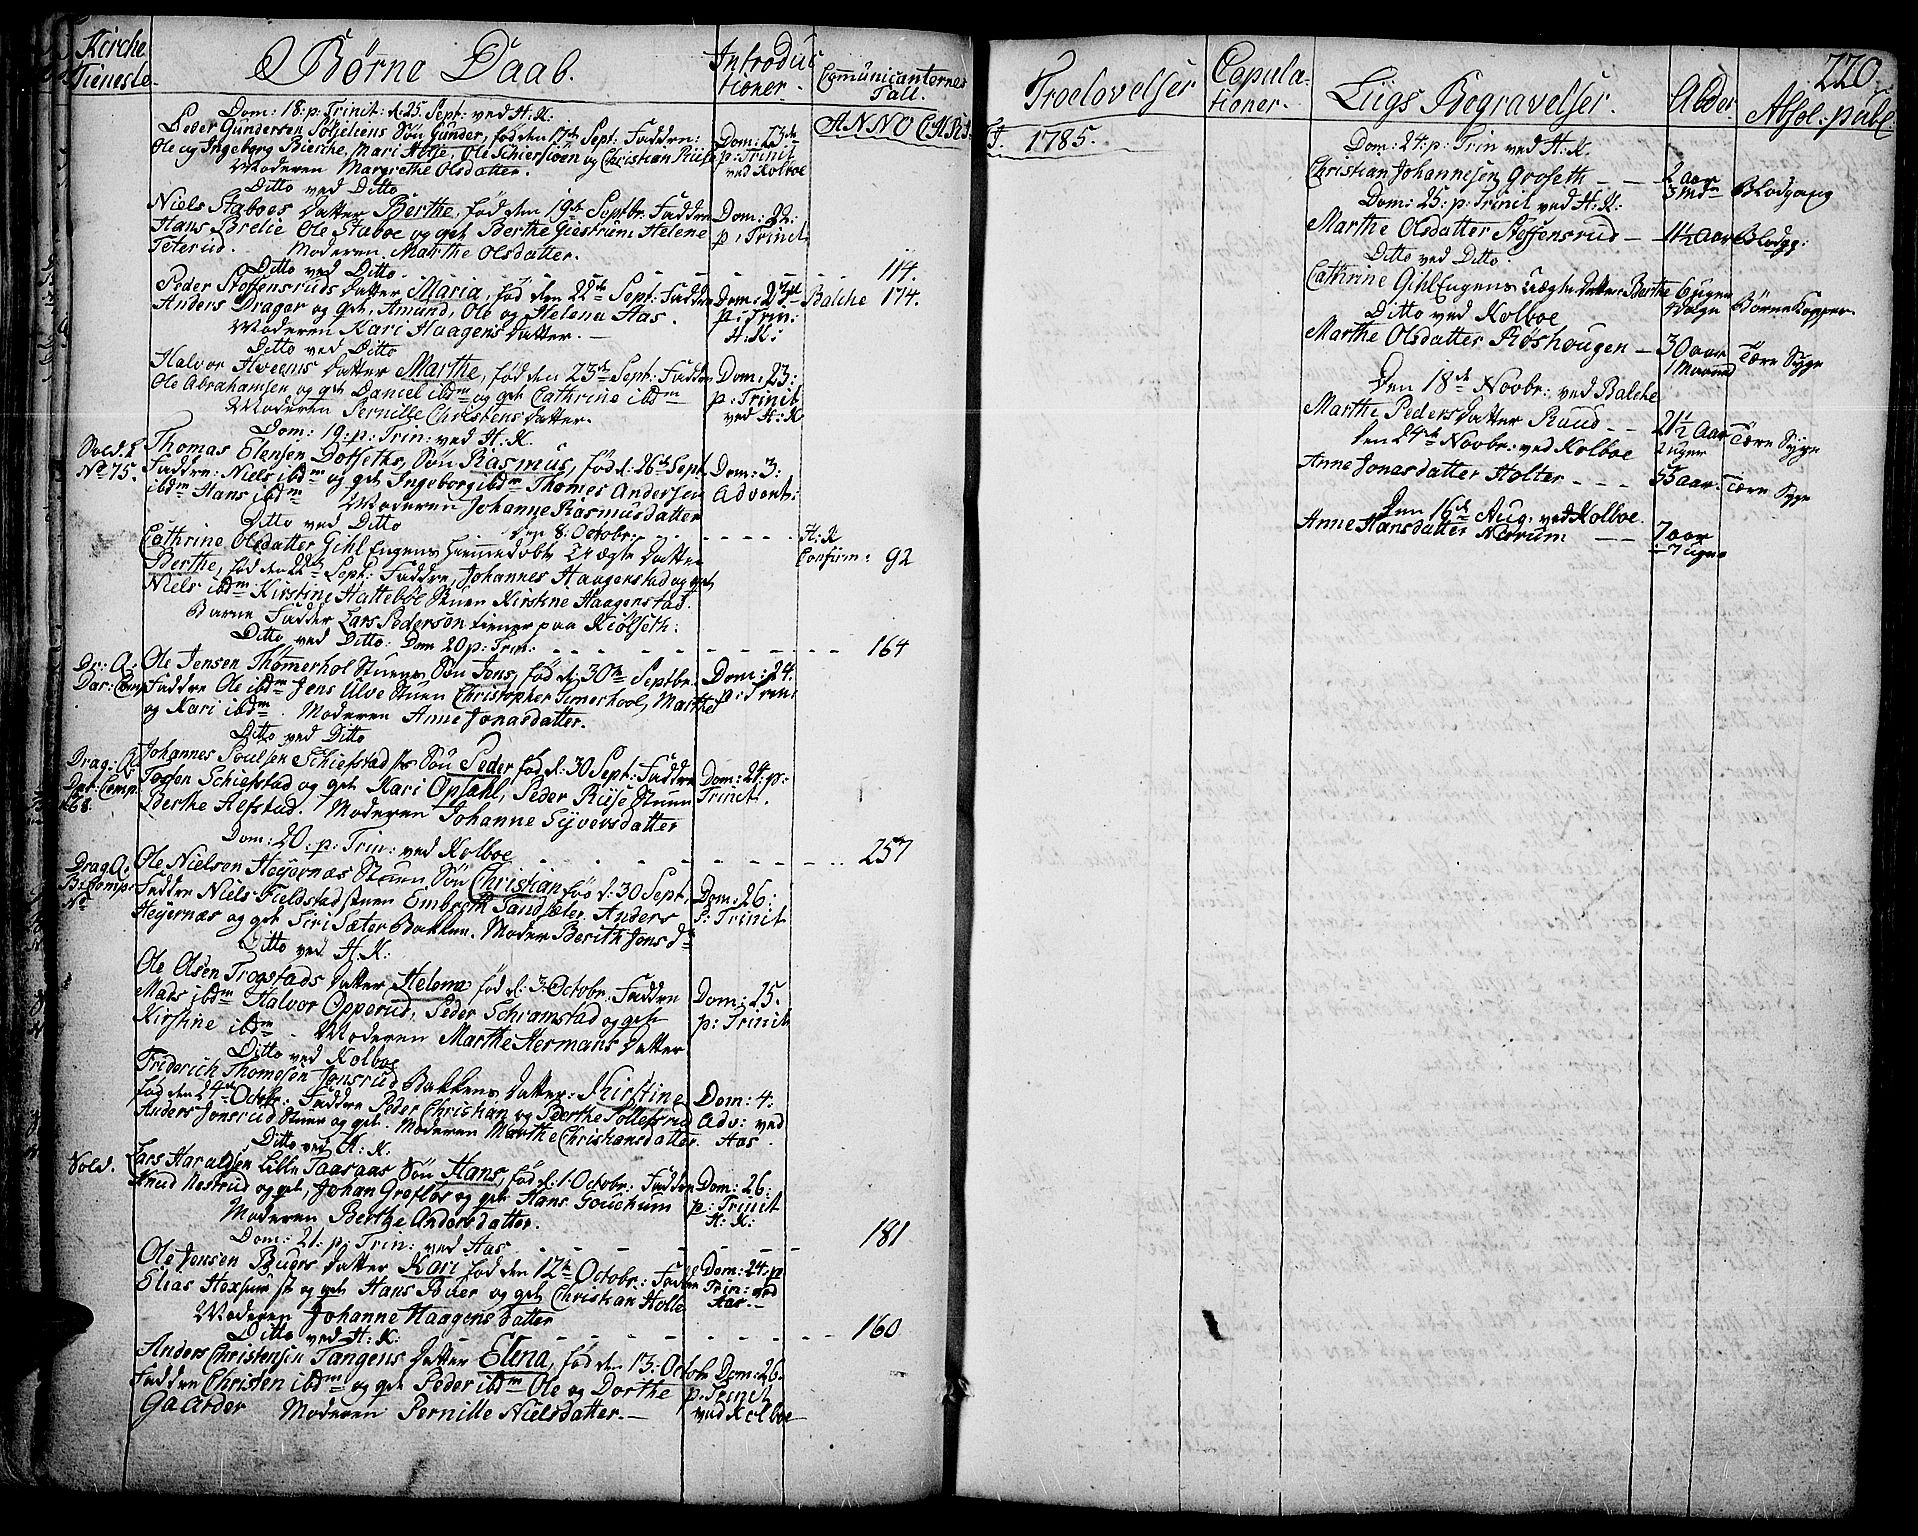 Kirche
Tieneste.
Børne Daab.
Introduc
tioner.
Comunicanternes
Tall.
ANNO CHRI
Dom: 18: p: Trinit: d: 25. Sept: ved H: K:
Peder Gundersen Søn Gunder, fød den 17de Sept: Faddre:
Ole og Ingeborg Bierche, Mari, Ole Schiersiøen og Christian Riise
Moderen Margrethe Olsdatter.
Dom: 23de
p: Trinit
ved Kolboe
Ditto ved Ditto
Niels Staboes Datter Berthe, fød den 19de Septbr. Faddre
Hans Brelie Ole Staboe og get Berthe Giestrum Helene
Teterud. Moderen Marthe Olsdatter.
Dom: 22:
p: Trinit.
Ditto ved Ditto. - - - - 114.
Peder Stoffensruds Datter Maria, fød den 22de Sept: Faddre
Anders Drager og get, Amund, Ole og Helena Aas.
Moderen Kari Haagens Datter. -
Dom: 23de
p: Trin:
H: K:
Balche 174.
Ditto ved Ditto
Halvor Hveens Datter Marthe, fød den 23de Sept: Faddre
Ole Abrahamsen og get Daniel ibdm og get Cathrine ibdm
Moderen Pernille Christens Datter.
Dom: 23:
p: Trinit
ved H: K
Dom: 19: p: Trin: ved H: K.
Sold. L
No 75.
Thomas Elensen Dotsethe, Søn Rasmus, fød d: 26de Sept
Faddre: Niels ibdm og get Ingeborg ibdm Thomes Andersen
ibdm Hans ibdm Moderen Johanne Rasmusdatter
Dom: 3:
Advent:
Ditto ved Ditto den 8: Octobr. - - - - H: K
Cathrine Olsdatter Gihl Eugens hiemmedøbte Uægte Datter
Berthe, fød den 22de Sept: Faddre, Johannes Haagenstad og get
Niels ibdm Kirstine Hattebøl Stuen Kirstine Haagenstad.
Barne Fadder Lars Pederson tiener paa Kiølseth:
Confirm: 92
Ditto ved Ditto: Dom 20 p: Trin: - - - - 164
Dr: A:
Dar: Comp
Ole Jensen Thømerhol Stuens Søn Jens, fød d: 30te Septbr.
Faddre Ole ibdm Jens Ulve Stuen Christopher Timerhool, Marthe
og Kari ibdm. Moderen Anne Jonasdatter.
Dom: 24.
p: Trin:
Ditto ved Ditto
Drag: A:
Dpt: Comp.
168.
Johannes Poulsen Schiefstad Søn Peder fød d: 30 Sept: Faddre
Schiefstad og get Kari Opsahl, Peder Riise Stuen
Berthe Alfstad. Moderen Johanne Syversdatter
Dom: 24: p:
Trinit.
Dom: 20. p: Trin: ved Kolboe - - - - 257
Drag A:
B: Comp:
No
Ole Nielsen Heyernæs Stuen Søn Christian fød d: 30 Sept:
Faddre Niels Fieldstad Stuen Embreth Sandsæter, Anders
Heyernæs og get Siri Sæter Bakken. Moder Berith Jons dr
Dom: 26:
p: Trinit
Ditto ved H: K.
Ole Olsen Trogstads Datter Helena fød d: 3: Octobr. Faddre
Mads ibdm Halvor Opperud, Peder Schramstad og get
Kirstine ibdm - Moderen Marthe Hermans Datter
Dom: 25.
p: Trinit
Ditto ved Kolboe
Friderich Thomesen Jonsrud Bakkens Datter: Kirstine
fød den 24de Octobr: Faddre Peder Christian og Berthe Tollefsrud
Anders Jonsrud Stuen og get. Moderen Marthe Christiansdatter.
Dom: 4:
Adv: ved
Aas.
Ditto ved H. K.
Sold.
Lars Haraldsen Lille Taasaas Søn Hans, fød d: 1. Octobr. Faddre
Knud Nestrud og get, Johan Grefløs og get Hans Gouchum
Moderen Berthe Andersdatter.
Dom: 26:
p: Trinit
H: K:
Dom: 21: p: Trin: ved Aas - - - - 181
Ole Jensen Buers Datter Kari fød den 12te Octobr: Faddre
Elias Hexum og get Hans Buer og get Christian Holle
Moderen Johanne Haagens Datter
Dom: 24. p
Trin: ved
Aas. -
Ditto ved H: K: - - - - 160
Anders Christensen Tangens Datter Elena, fød den 13: Octob
Faddre Christen ibdm og get Peder ibdm Ole og Dorthe
Gaarder Moderen Pernille Nielsdatter. -
Dom: 26.
p: Trinit
ved Kolboe
Troelovelser
Copula-
tioner.
Liigs Begravelser.
Alder
220.
Absol: publ.
1785.
Dom: 24: p: Trin ved H: K.
Christian Johannesen Grøseth - - 2 aar 3 Mdr Blodgang
Dom: 25: p: Trinit ved H: K:
Marthe Olsdatter Stoffensrud - 11½ Aar Blodg:
Ditto ved Ditto:
Cathrine Gihl Eugens Uægte Datter Berthe 6 uger 4 Dage Børne Kopper.
Ditto ved Kolboe
Marthe Olsdatter Røshougen - 30 aar 1 Maaned Tære Syge
Den 18de Novbr: ved Balche
Marthe Peders Datter Ruud - - 21½ Aar 2 uger Tære Syge
Den 24de Novbr: ved Kolboe
Anne Jonasdatter Holter - - - 55 aar Tære Syge
Den 16de Aug. ved Kolboe.
Anne Hansdatter Nerrum - - 7 aar 7 uger